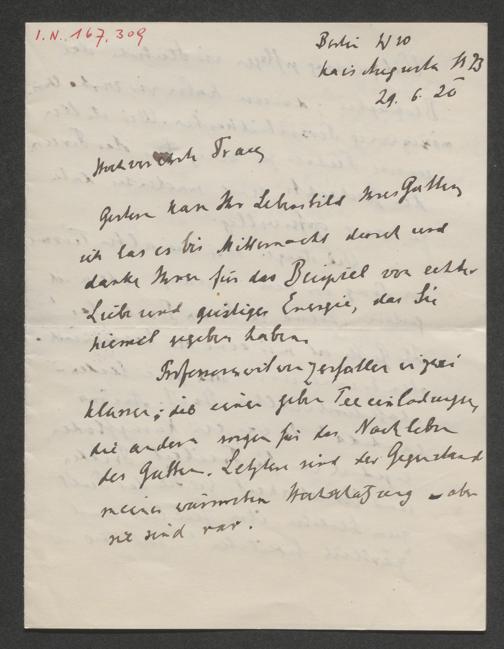 I.N. 167.309
Berlin W 10
Kais Augusta St 73
29. 6. 20
Hochverehrte Frau,
Gestern kam Ihr Lebensbild Ihres Gatten,
ich las es bis Mitternacht durch und
danke Ihnen für das Beispiel von echter
Liebe und geistiger Energie, das Sie
hiemit gegeben haben.
Professorenwitwen zerfallen in zwei
Klassen; die einen geben Teeeinladungen,
die andern sorgen für das Nachleben
des Gatten. Letztere sind der Gegenstand
meiner wärmsten Hochschätzung – aber
sie sind rar.